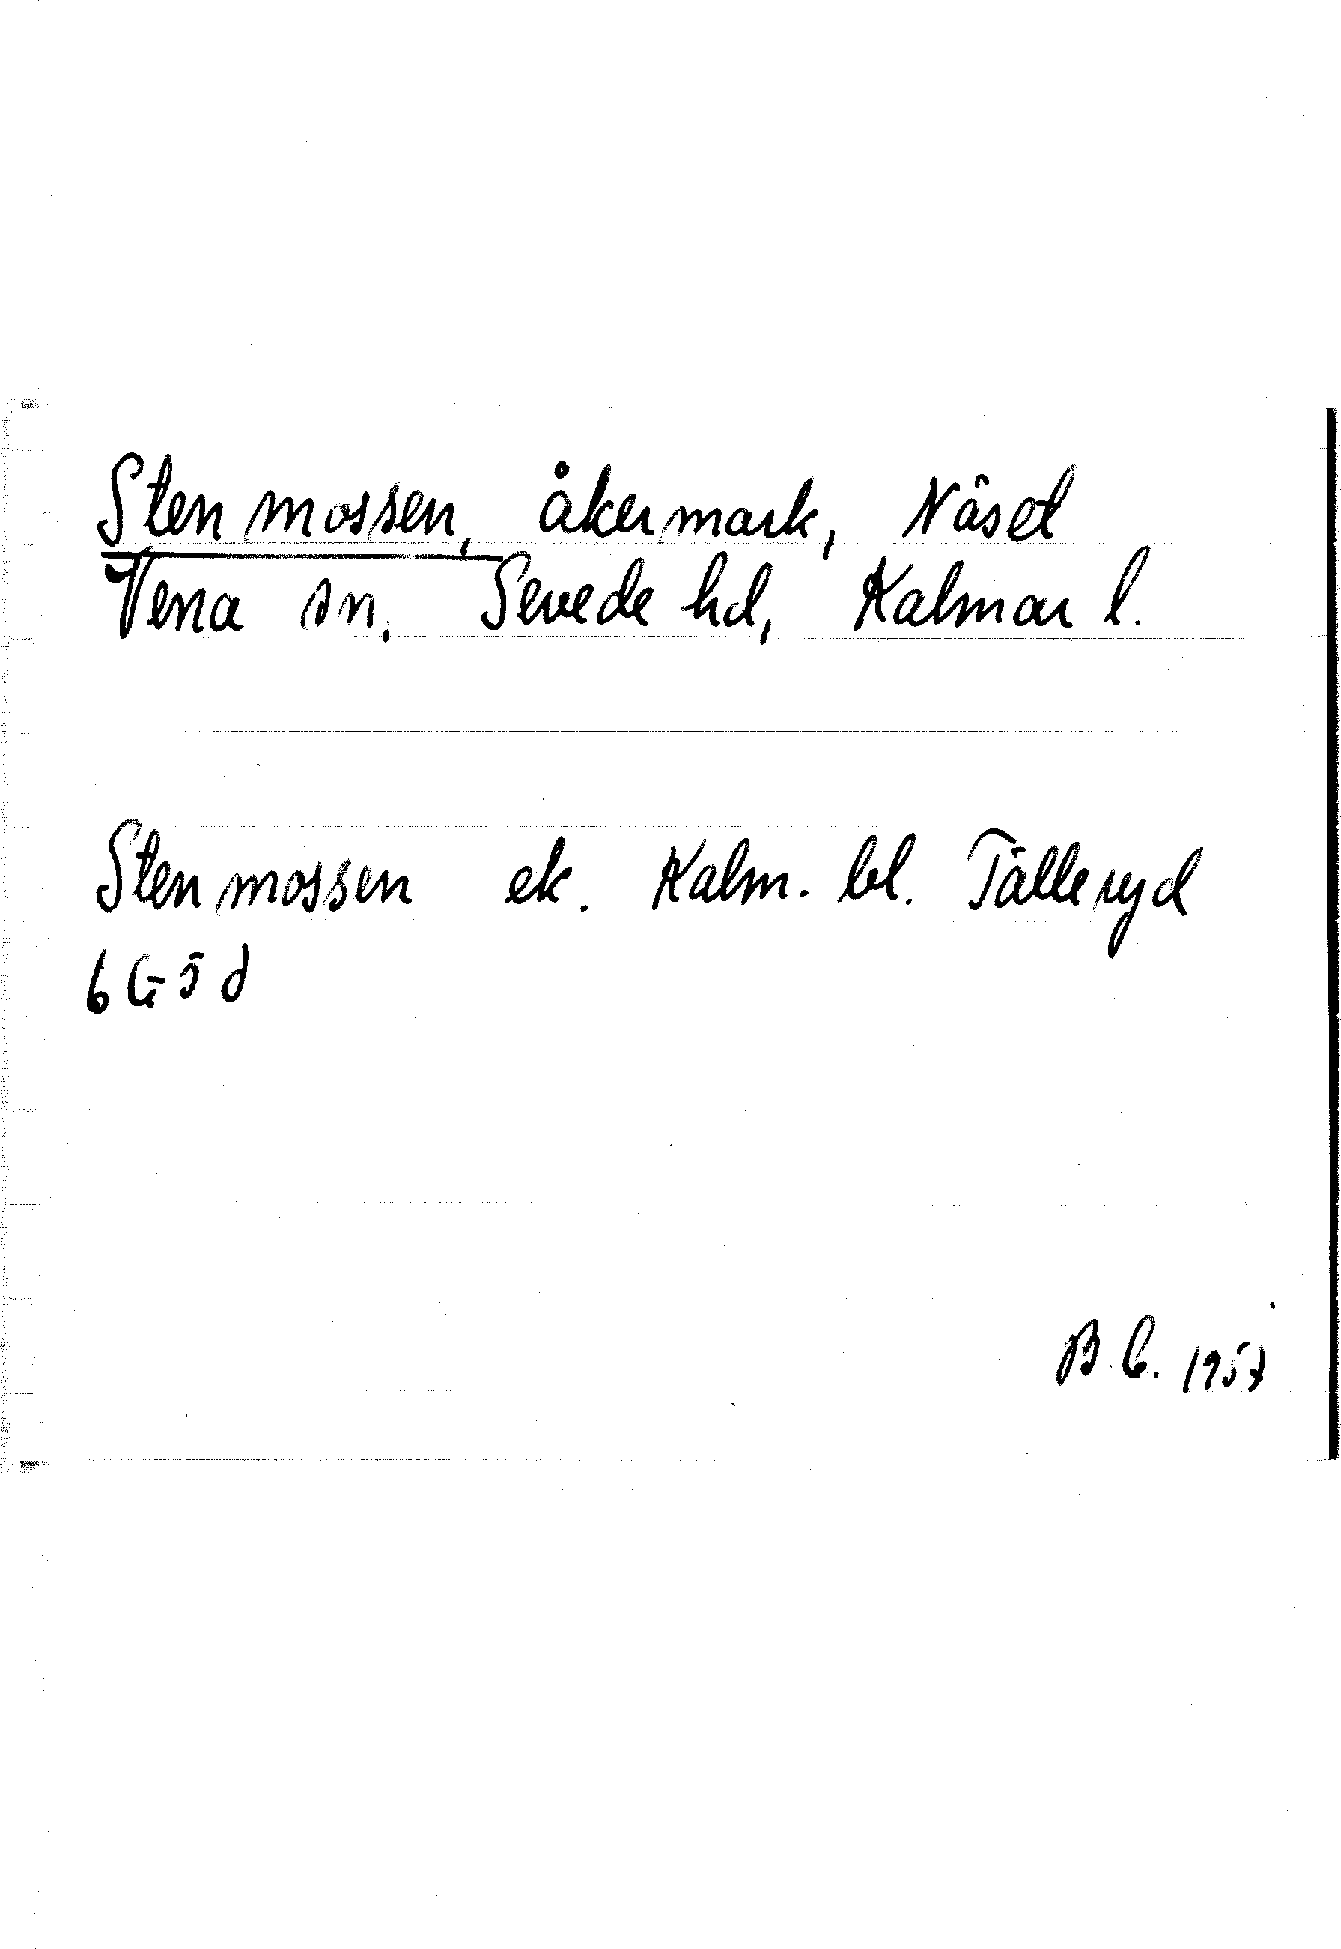 Stenmossen, åkermark, Näset
Vena sn. Sevede hd, Kalmar l.
Stenmossen ek. Kalm. bl. Tälleryd
6G5d
B.C. 1957